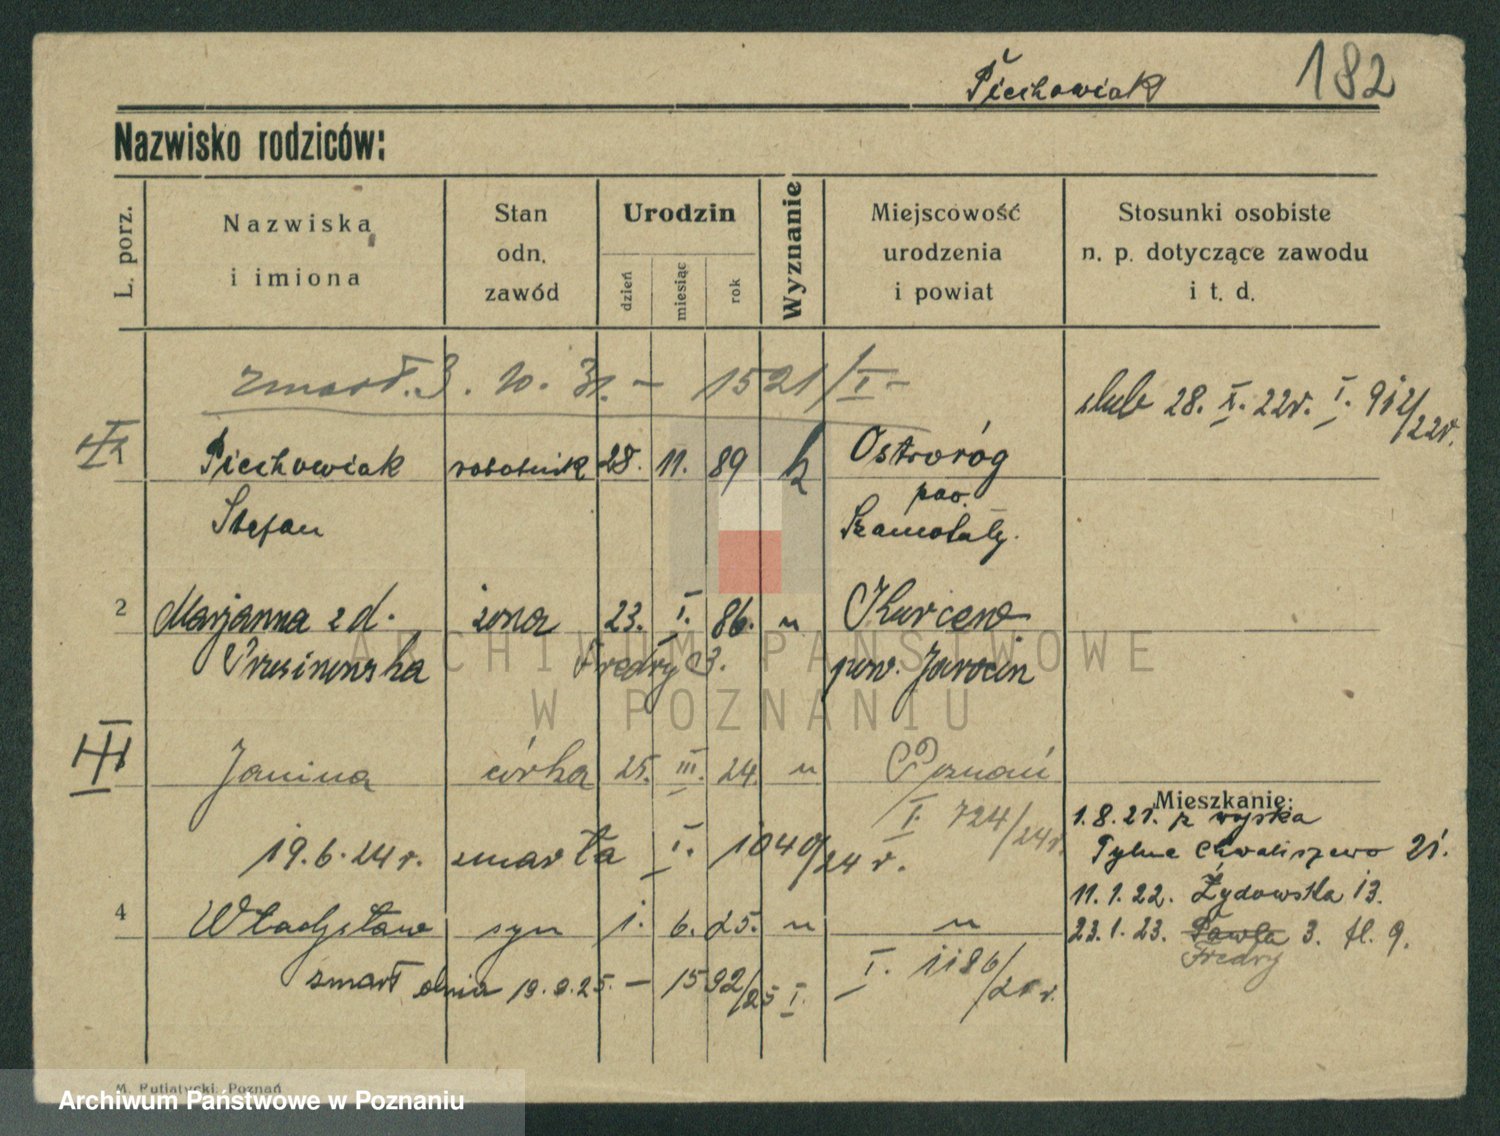 Piechowiak 182
Nazwisko rodziców:
L. porz.
Nazwiska
i imiona
Stan
odn.
zawód
Urodzin
dzień
miesiąc
rok
Wyznanie
Miejscowość
urodzenia
i powiat
Stosunki osobiste
n. p. dotyczące zawodu
i t. d.
zmarł. 3. 10. 31. - 1521/I -
ślub 28. X. 22r. I. 912/22r.
Piechowiak robotnik 28. 11. 89 k Ostroróg
Stefan pow. Szamotuły.
2 Marjanna z d. żona 23. I. 86. " Kurcew
Fredry 3. pow. Jarocin
Janina córka 25. III. 24. " Poznań
I. 724/24r.
Mieszkanie:
1.8.21. z wojska
19.6.24r. zmarła I. 1040/24r.
Tylne Chwaliszewo 21.
11.1.22. Żydowska 13.
4 Władysław syn 1. 6. 25. " "
23.1.23. Pawła 3. fl. 9.
Fredry
zmarł dnia 19.9.25. - 1592/25 I.
I. 1186/25r.
M. Putiatycki, Poznań
ARCHIWUM PAŃSTWOWE
W POZNANIU
Archiwum Państwowe w Poznaniu